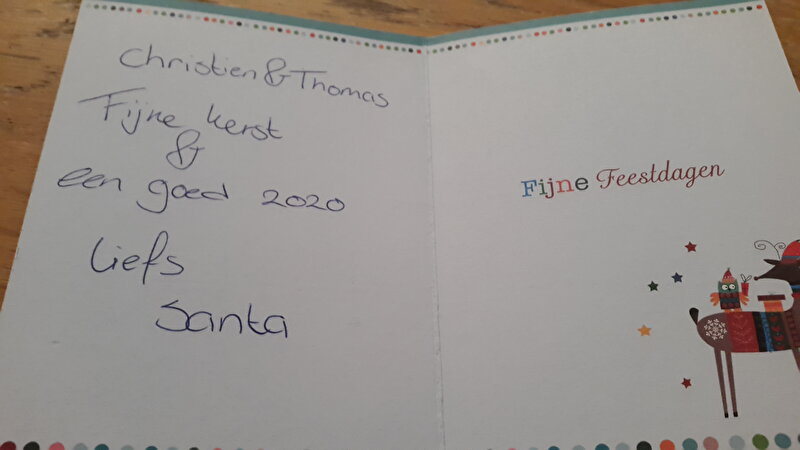 Christien & Thomas
Fijne kerst
&
een goed 2020
liefs
Santa
Fijne Feestdagen